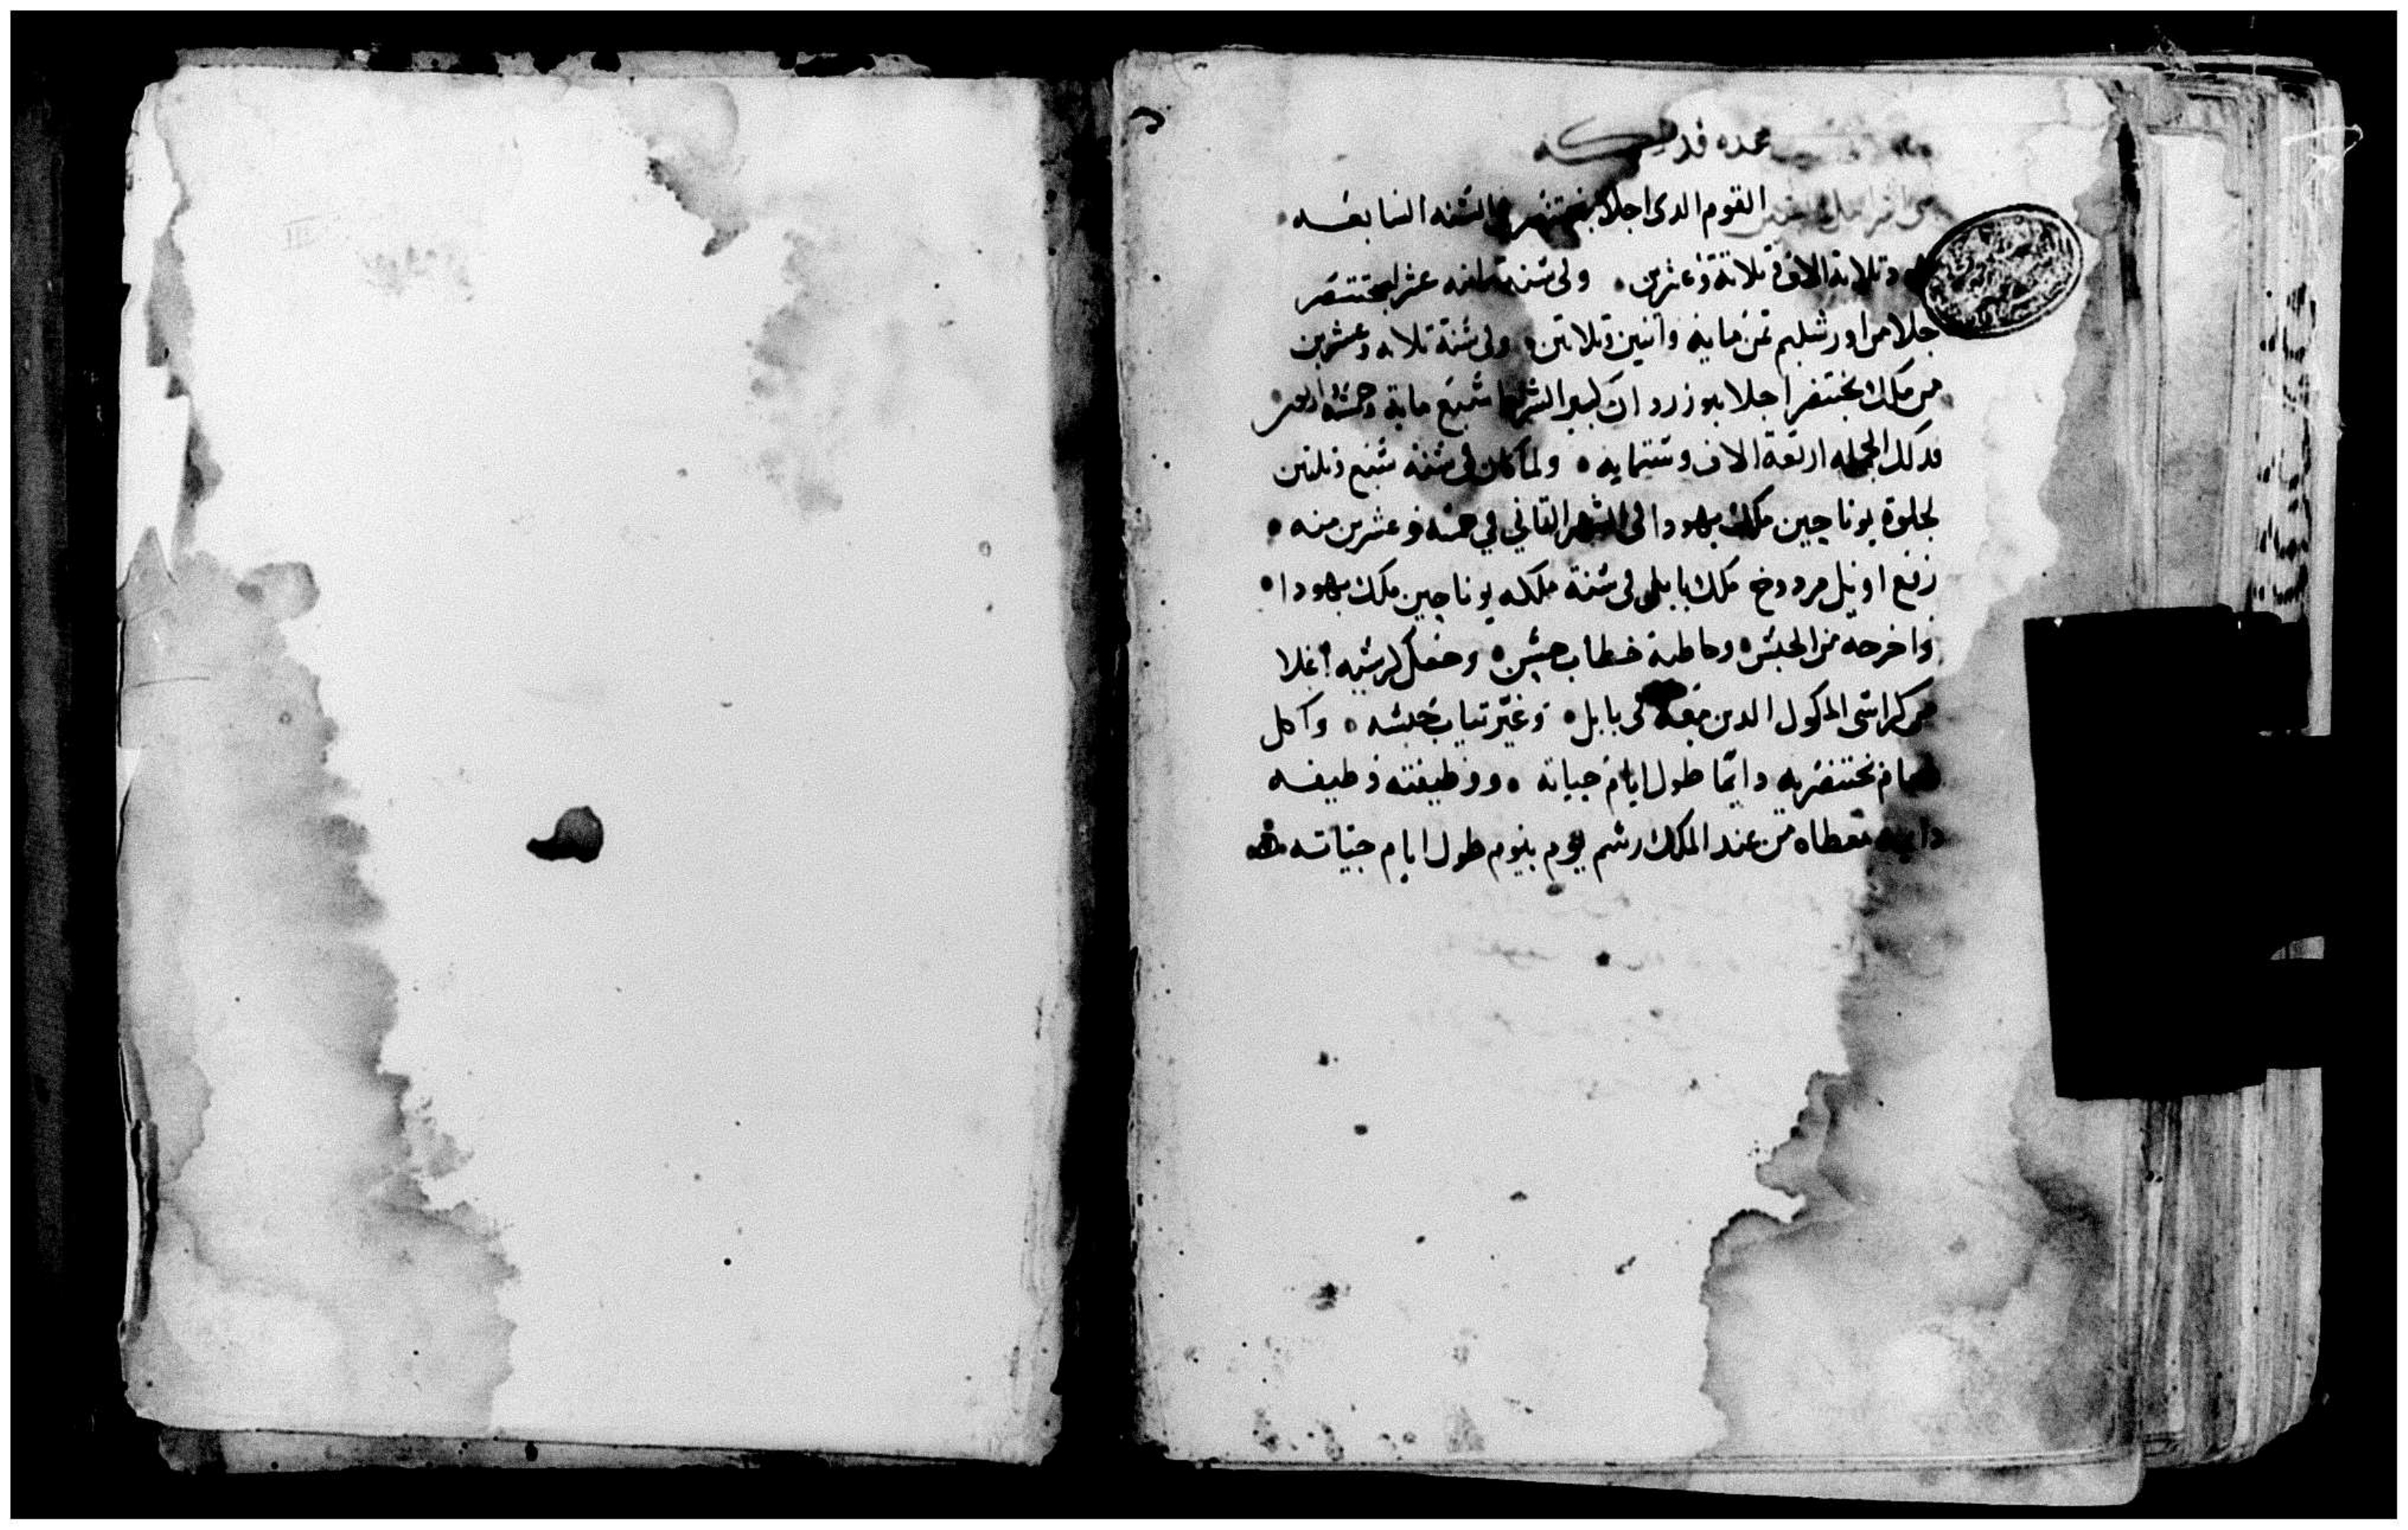 عده قد
القوم الدى اجلا بختنصر فى السنه السابعه
وتلاتة الاف وتلاتة وعشرين ٠ وفى سنة تمانيه عشر لبختنصر
جلا من اورشليم تمن مايه واتنين وتلاتين ٠ وفى سنة تلاته وعشرين
من ملك بختنصر اجلا نبوزردان كبير الشرط سبع ماية وخمسه اربعين
فدلك الجمله اربعة الاف وستمايه ٠ ولما كان فى سنة سبع وتلتين
لجلوة يوناحين ملك يهودا فى الشهر التاني في خمسه وعشرين منه ٠
رفع اويل مردوخ ملك بابل فى سنة ملكه يوناحين ملك يهودا ٠
واخرجه من الحبس ٠ وخاطبه خطاب حسن ٠ وجعل كرسيه اعلا
من كراسى الملوك الدين معه فى بابل ٠ وغير تياب حبسه ٠ واكل
طعام بحضرته دايما طول ايام حياته ٠ ووظيفته وظيفه
دايمه تعطاه من عند الملك رسم يوم بيوم طول ايام حياته